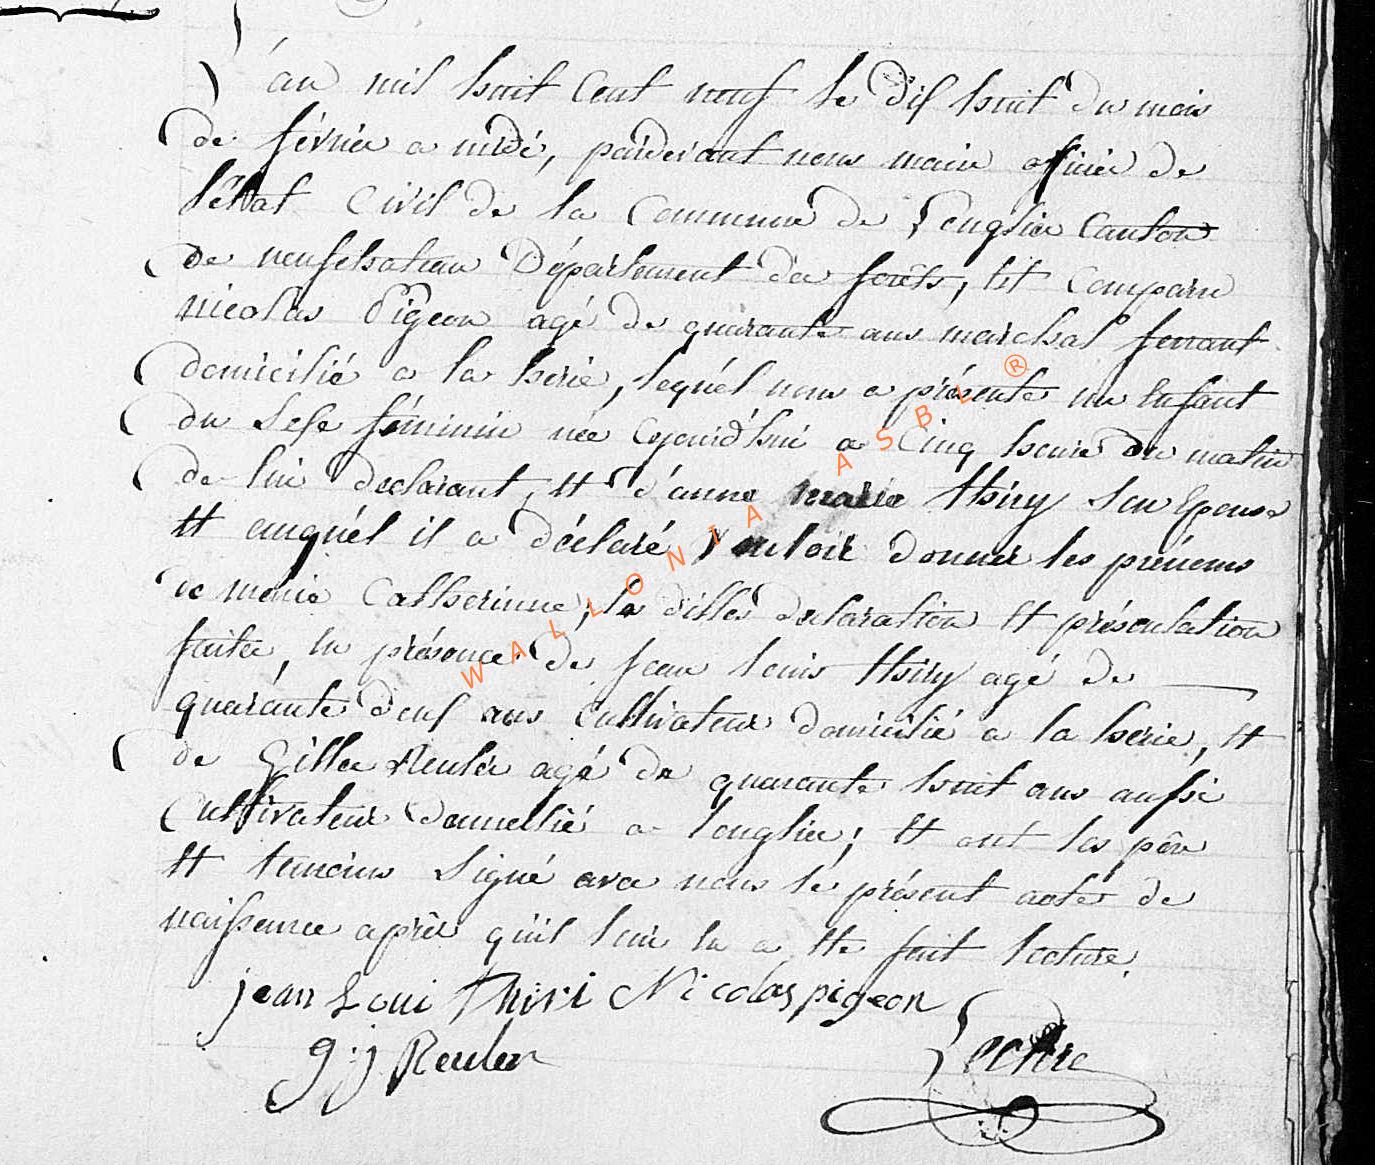 L'an mil huit cent neuf le dix huit du mois
de fevrier a midi, pardevant nous maire officier de
l'état Civil de la Commune de Longlier Canton
de neufchateau Département des forêts, est comparu
nicolas Pigeon agé de quarante ans marchal ferrant
domicilié a la herie, lequél nous a présenté un Enfant
du Sexe féminin née cejourd'hui a Cinq heure du matin
de lui declarant, et d'anne marie thiry Son Epouse
et auquél il a déclaré vouloir donner les prénoms
de marie Catherinne, les dittes declaration et présentation
faites, en présence de jean louis thiry agé de
quaránte deux ans Cultivateur domicilié a la herie, et
de Gilles Reuler agé de quarante huit ans aussi
Cultivateur domicilié a longlier; et ont les pére
et temoins signé avec nous le présent acte de
naissance aprés qu'il leur en a été fait lecture.
jean Loui thiri Nicolas pigeon
g: j Reuler
WALLONIA ASBL ®